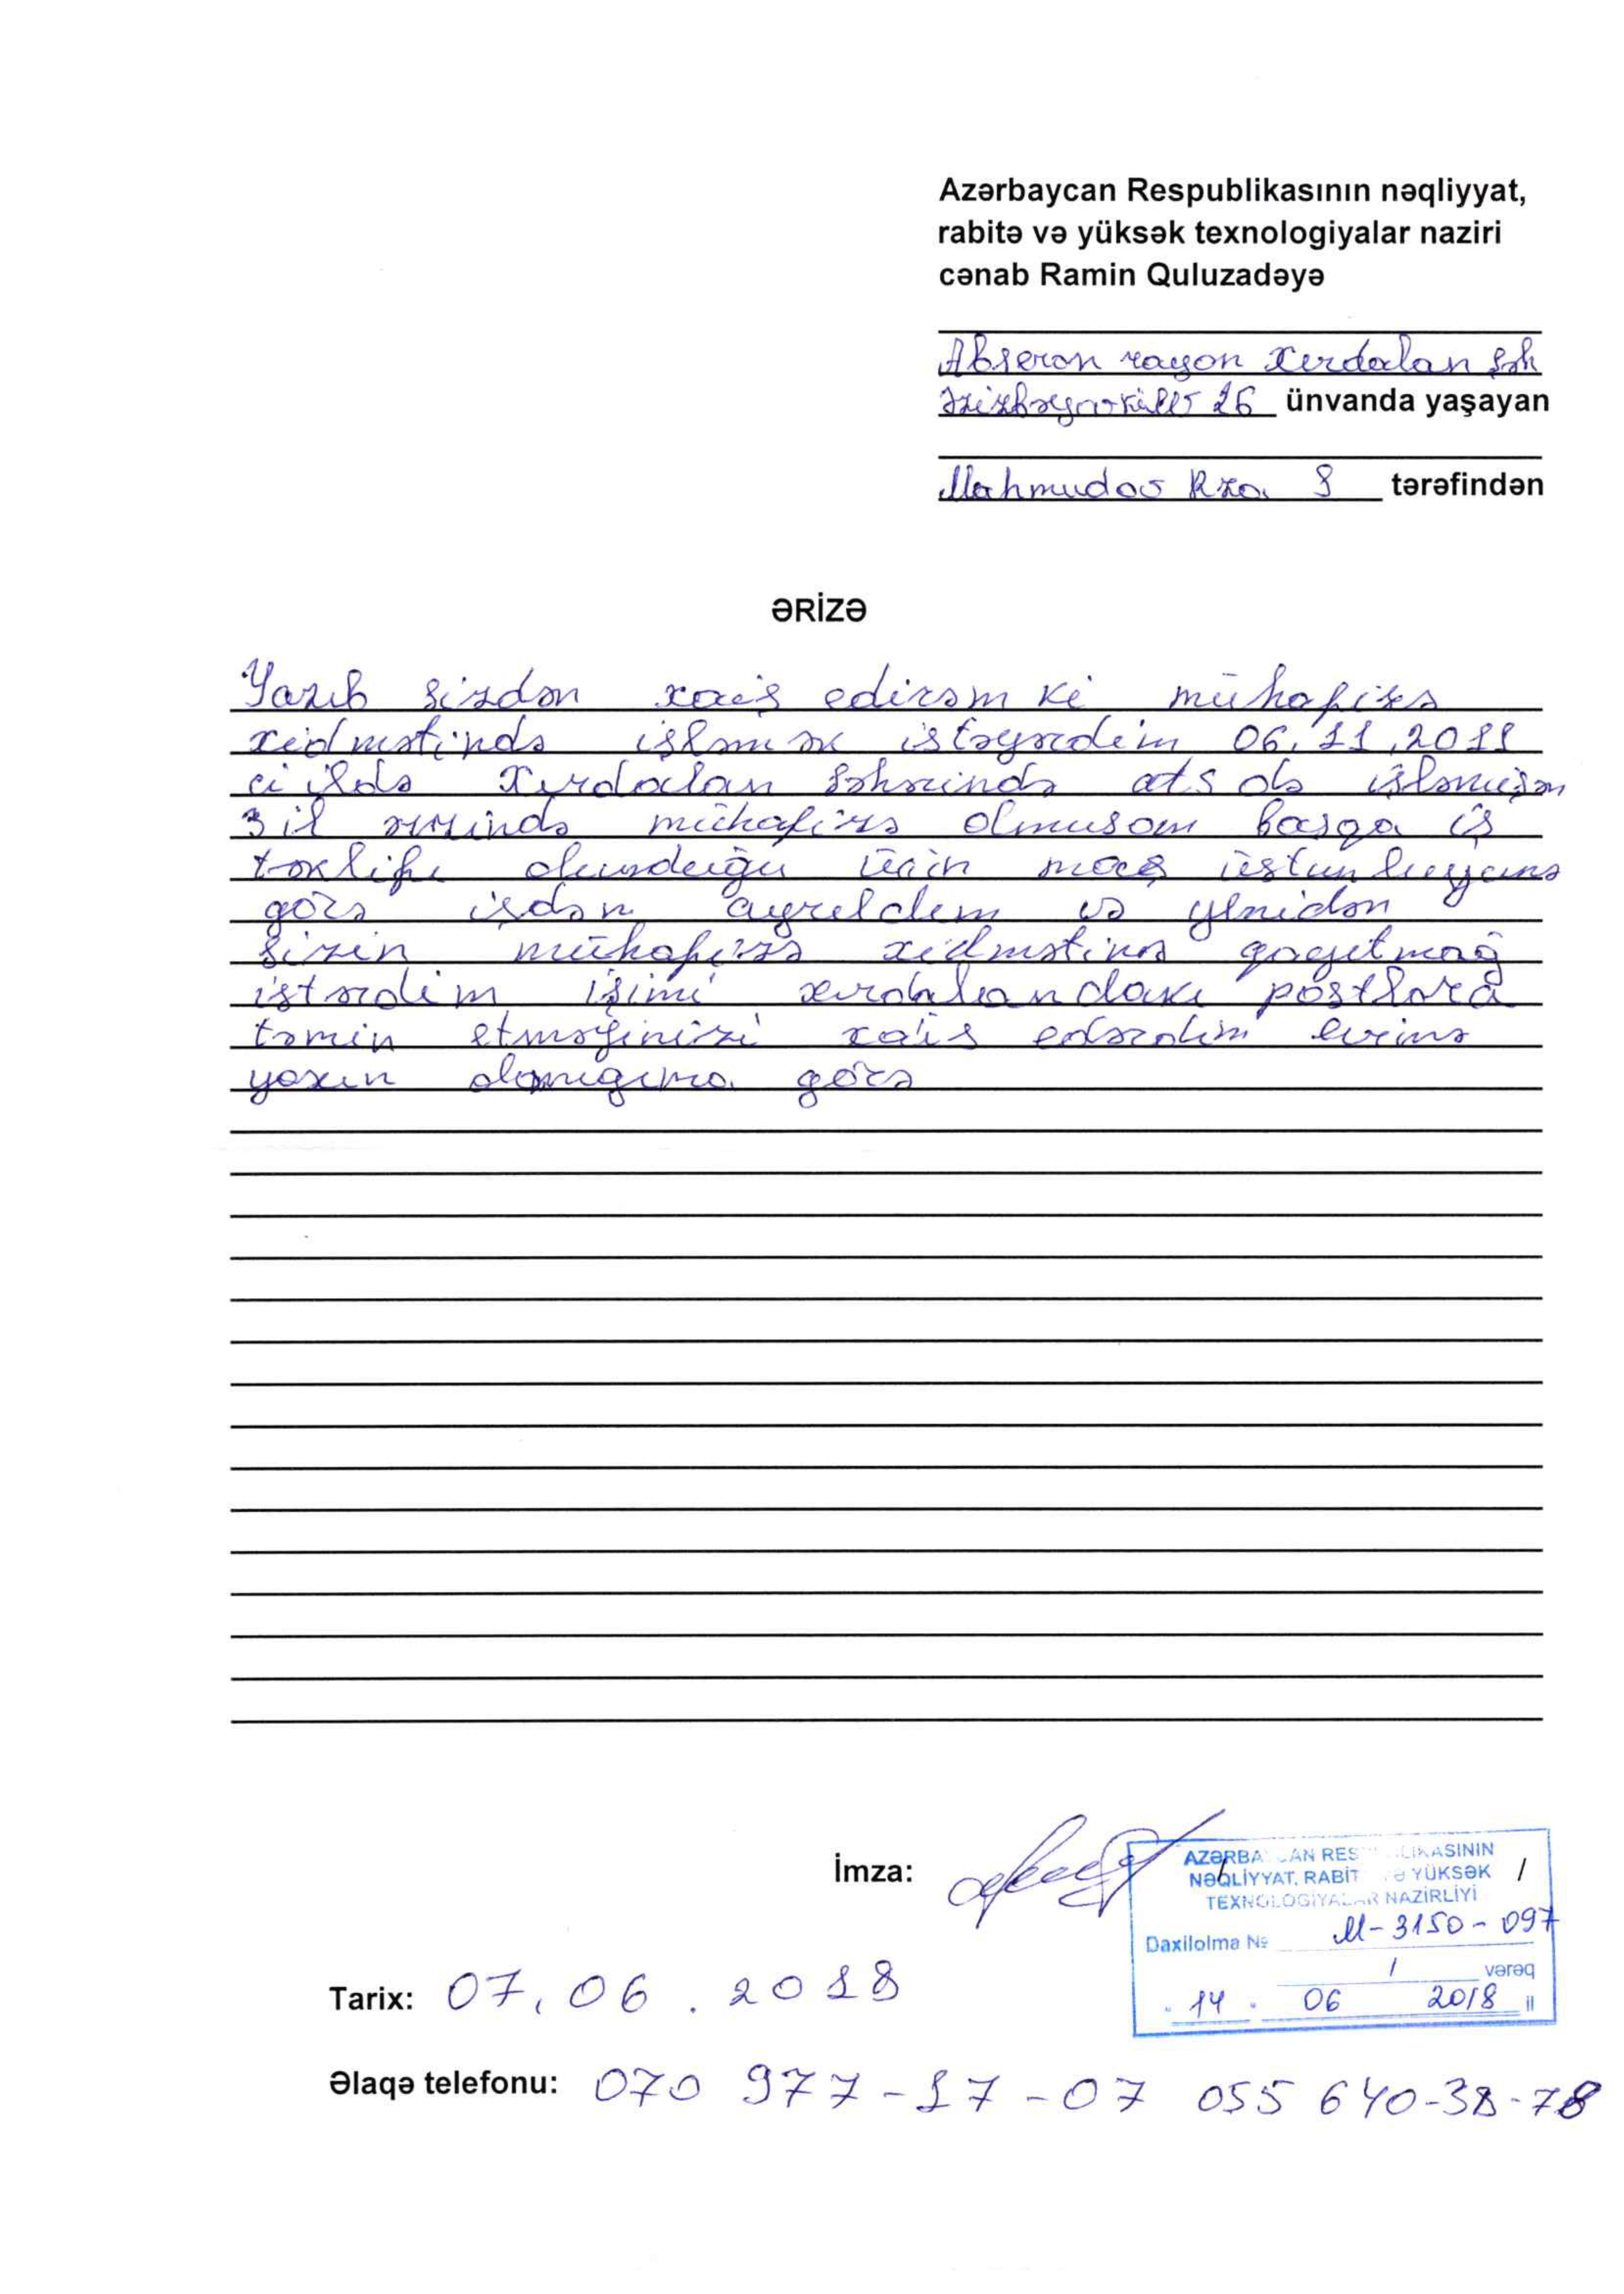 Azərbaycan Respublikasının nəqliyyat,
rabitə və yüksək texnologiyalar naziri
cənab Ramin Quluzadəyə
Abşeron rayon Xırdalan şəh
26 ünvanda yaşayan
Mahmudov Rza S tərəfindən
ƏRİZƏ
Yazıb sizdən xaiş edirəm ki mühafizə
xidmətində işləmək istəyərdim 06.11.2011
ci ildə Xırdalan şəhərində ats də işləmişəm
3 il ərzində mühafizə olmuşam başqa iş
təklifi olunduğu üçün maaş üstunluyunə
görə işdən ayrıldım və yenidən
sizin mühafizə xidmətinə qayıtmağ
istərdim işimi xırdalandakı postlara
təmin etməyinizi xaiş edərdim evimə
yaxın olmağıma görə
İmza:
AZƏRBAYCAN RESPUBLİKASININ
NƏQLİYYAT, RABİTƏ VƏ YÜKSƏK
TEXNOLOGİYALAR NAZİRLİYİ
Daxilolma № M-3150-097
1 vərəq
14 06 2018 il
Tarix: 07.06.2018
Əlaqə telefonu: 070 977-17-07 055 640-38-78